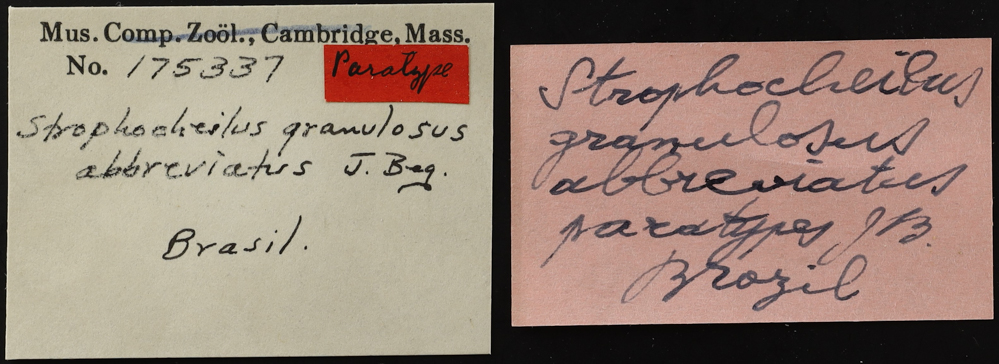 Mus. Comp. Zoöl., Cambridge, Mass.
No. 175337 Paratype
Strophocheilus granulosus
abbreviatus J. Beq.
Brasil.
Strophocheilus
granulosus
abbreviatus
paratypes JB.
Brozil